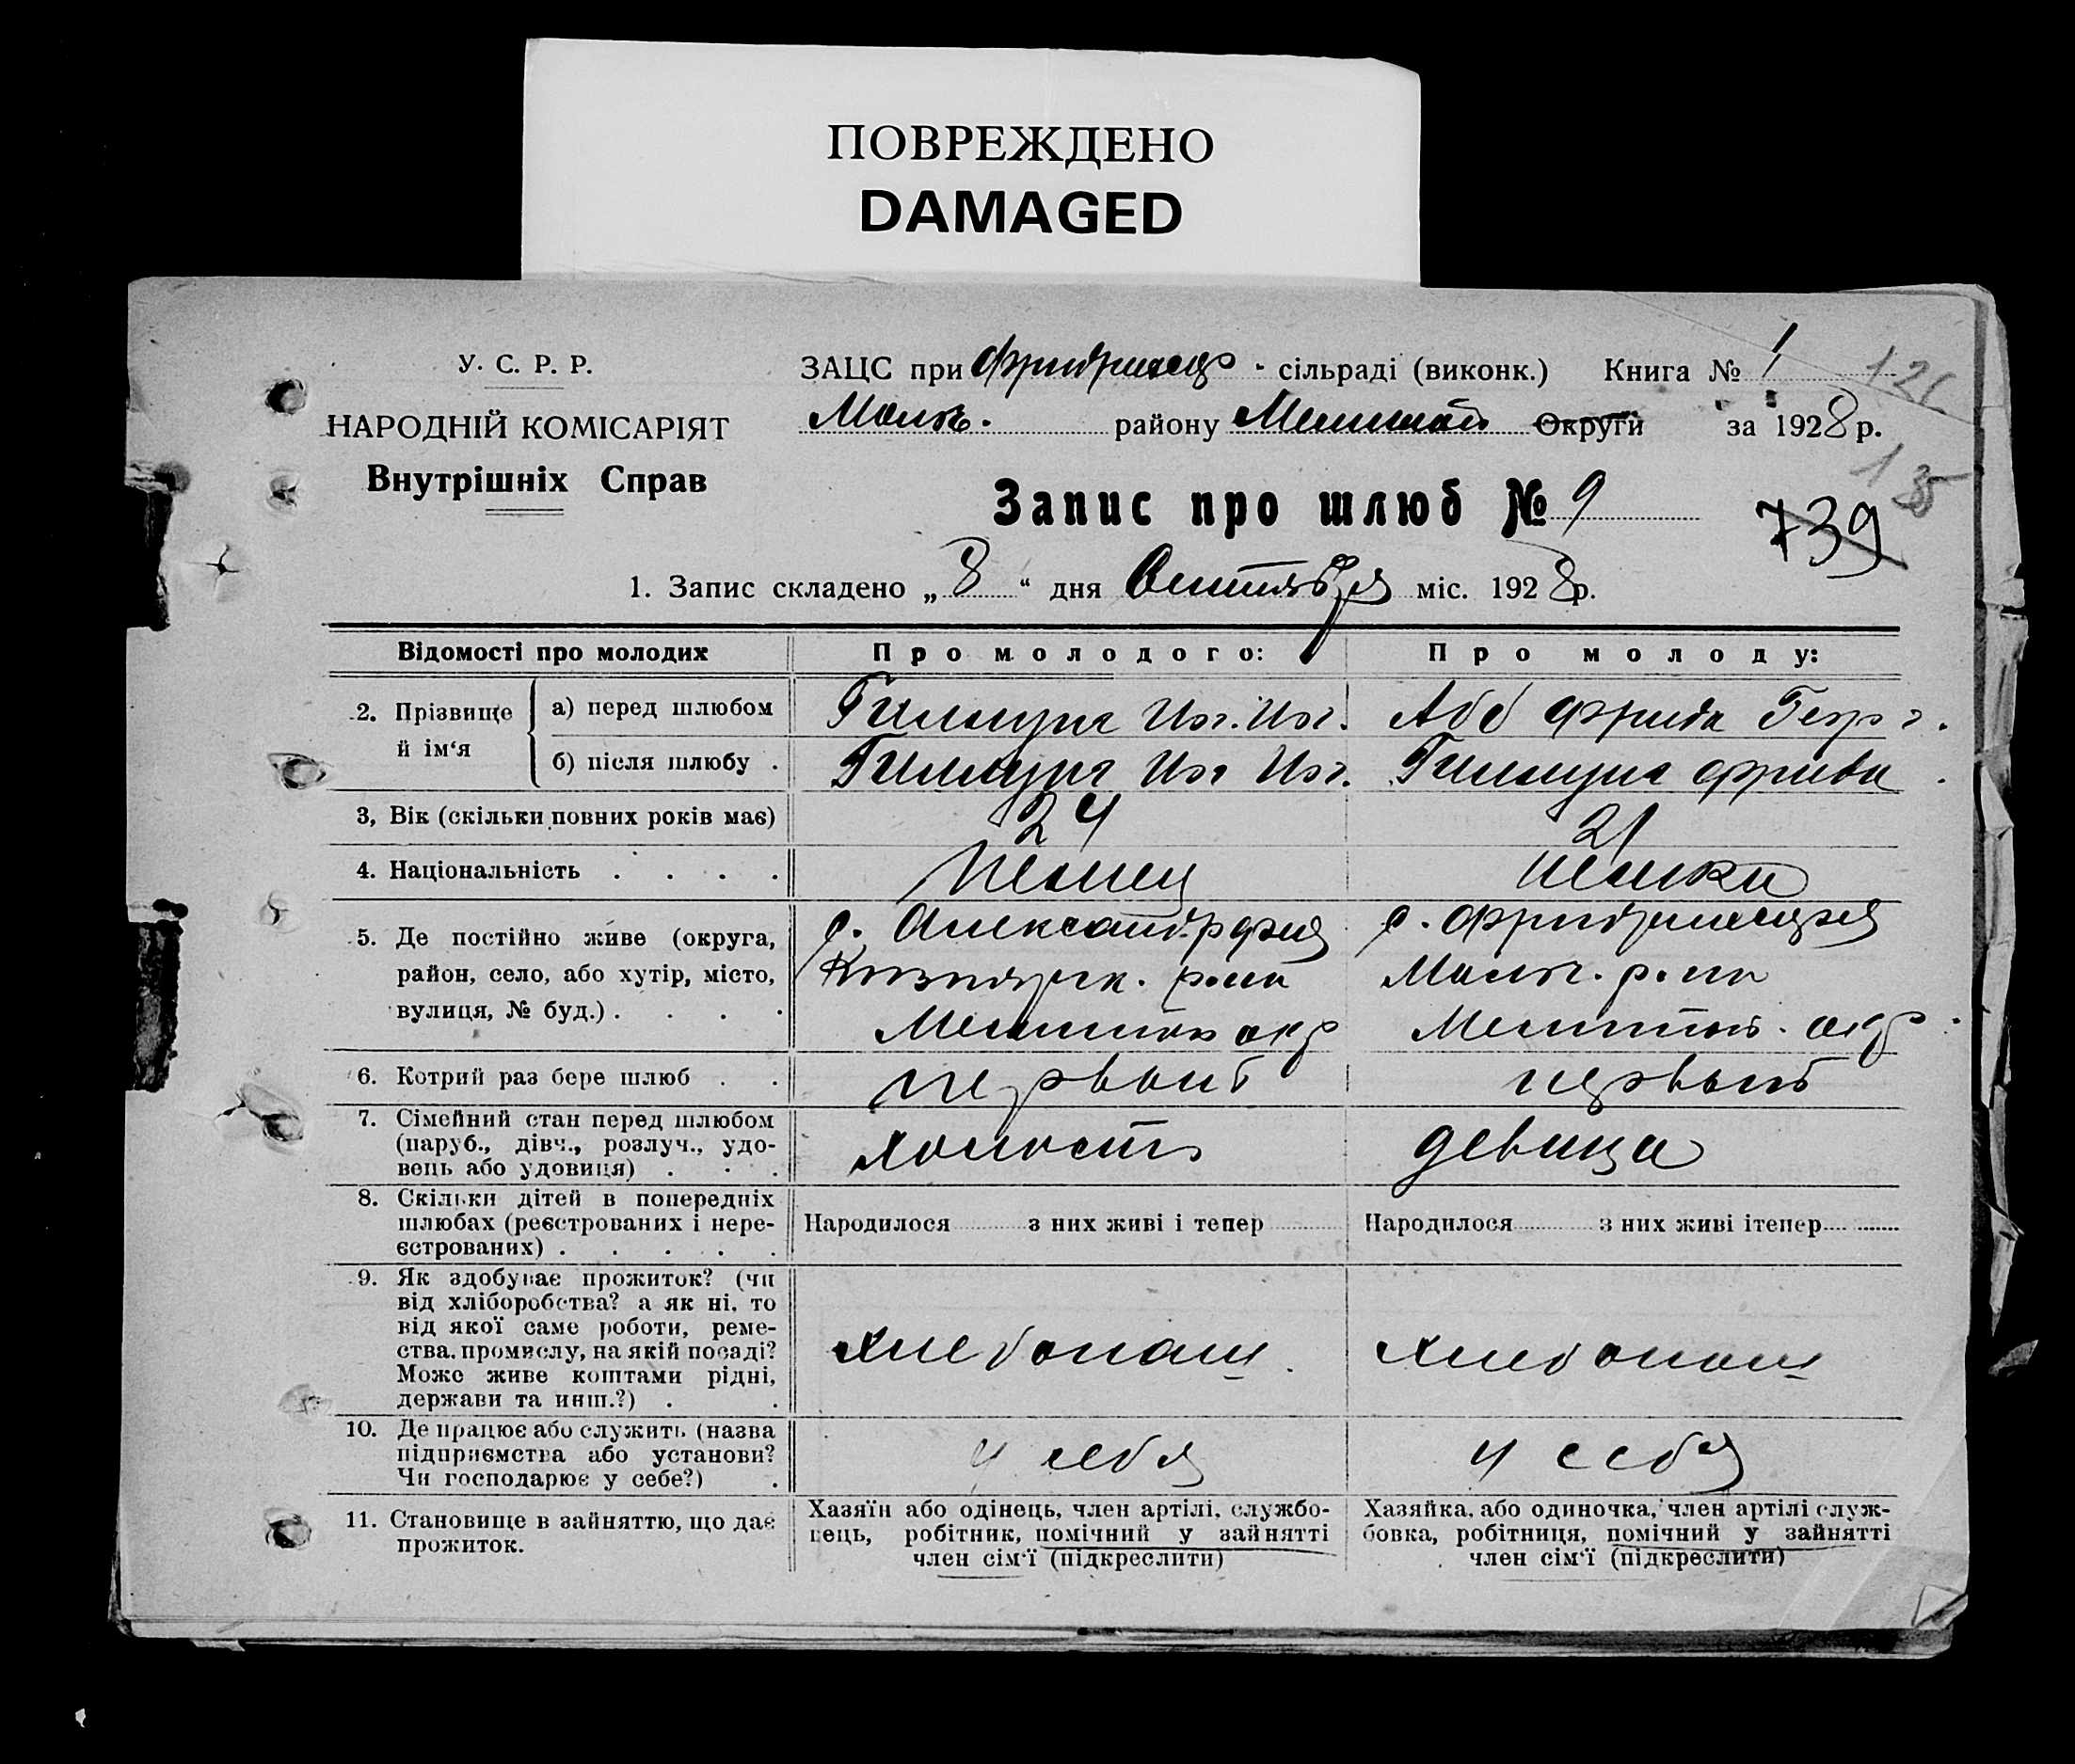 ПОВРЕЖДЕНО
DAMAGED
У. С. Р. Р.
НАРОДНІЙ КОМІСАРІЯТ
Внутрішніх Справ
ЗАЦС при - сільраді (виконк.) Книга № 1
126
Молоч. району Мелитоп Округи за 1928 р.
135
Запис про шлюб № 9
739
1. Запис складено „ 8 “ дня Сентября міс. 1928 р.
Відомості про молодих
Про молодого:
Про молоду:
2. Прізвище й ім‘я
а) перед шлюбом
Ив. Ив.
Абб Фрида Георг.
б) після шлюбу .
Ив Ив.
Фрида
3, Вік (скільки повних років має)
24
21
4. Національність . . . .
Немец
немка
5. Де постійно живе (округа,
район, село, або хутір, місто,
вулиця, № буд.) . . . .
с. Александрфельд
р-на
Мелитоп окр
с.
Молоч. р-на
Мелитоп. окр.
6. Котрий раз бере шлюб . .
первый
первый
7. Сімейний стан перед шлюбом
(паруб., дівч., розлуч., удо-
вець або удовиця) . . .
холост
девица
8. Скільки дітей в попередніх
шлюбах (реєстрованих і нере-
єстрованих) . . . . .
Народилося з них живі і тепер
Народилося з них живі ітепер
9. Як здобуває прожиток? (чи
від хліборобства? а як ні, то
від якої саме роботи, реме-
ства, промислу, на якій посаді?
Може живе коштами рідні,
держави та инш.?) . .
хлебопаш.
хлебопаш
10. Де працює або служить (назва
підприємства або установи?
Чи господарює у себе?) .
у себя
у себя
11. Становище в зайняттю, що дає
прожиток.
Хазяїн або одінець, член артілі, службо-
вець, робітник, помічний у зайнятті
член сім‘ї (підкреслити)
Хазяйка, або одиночка, член артілі служ-
бовка, робітниця, помічний у зайнятті
член сім‘ї (підкреслити)